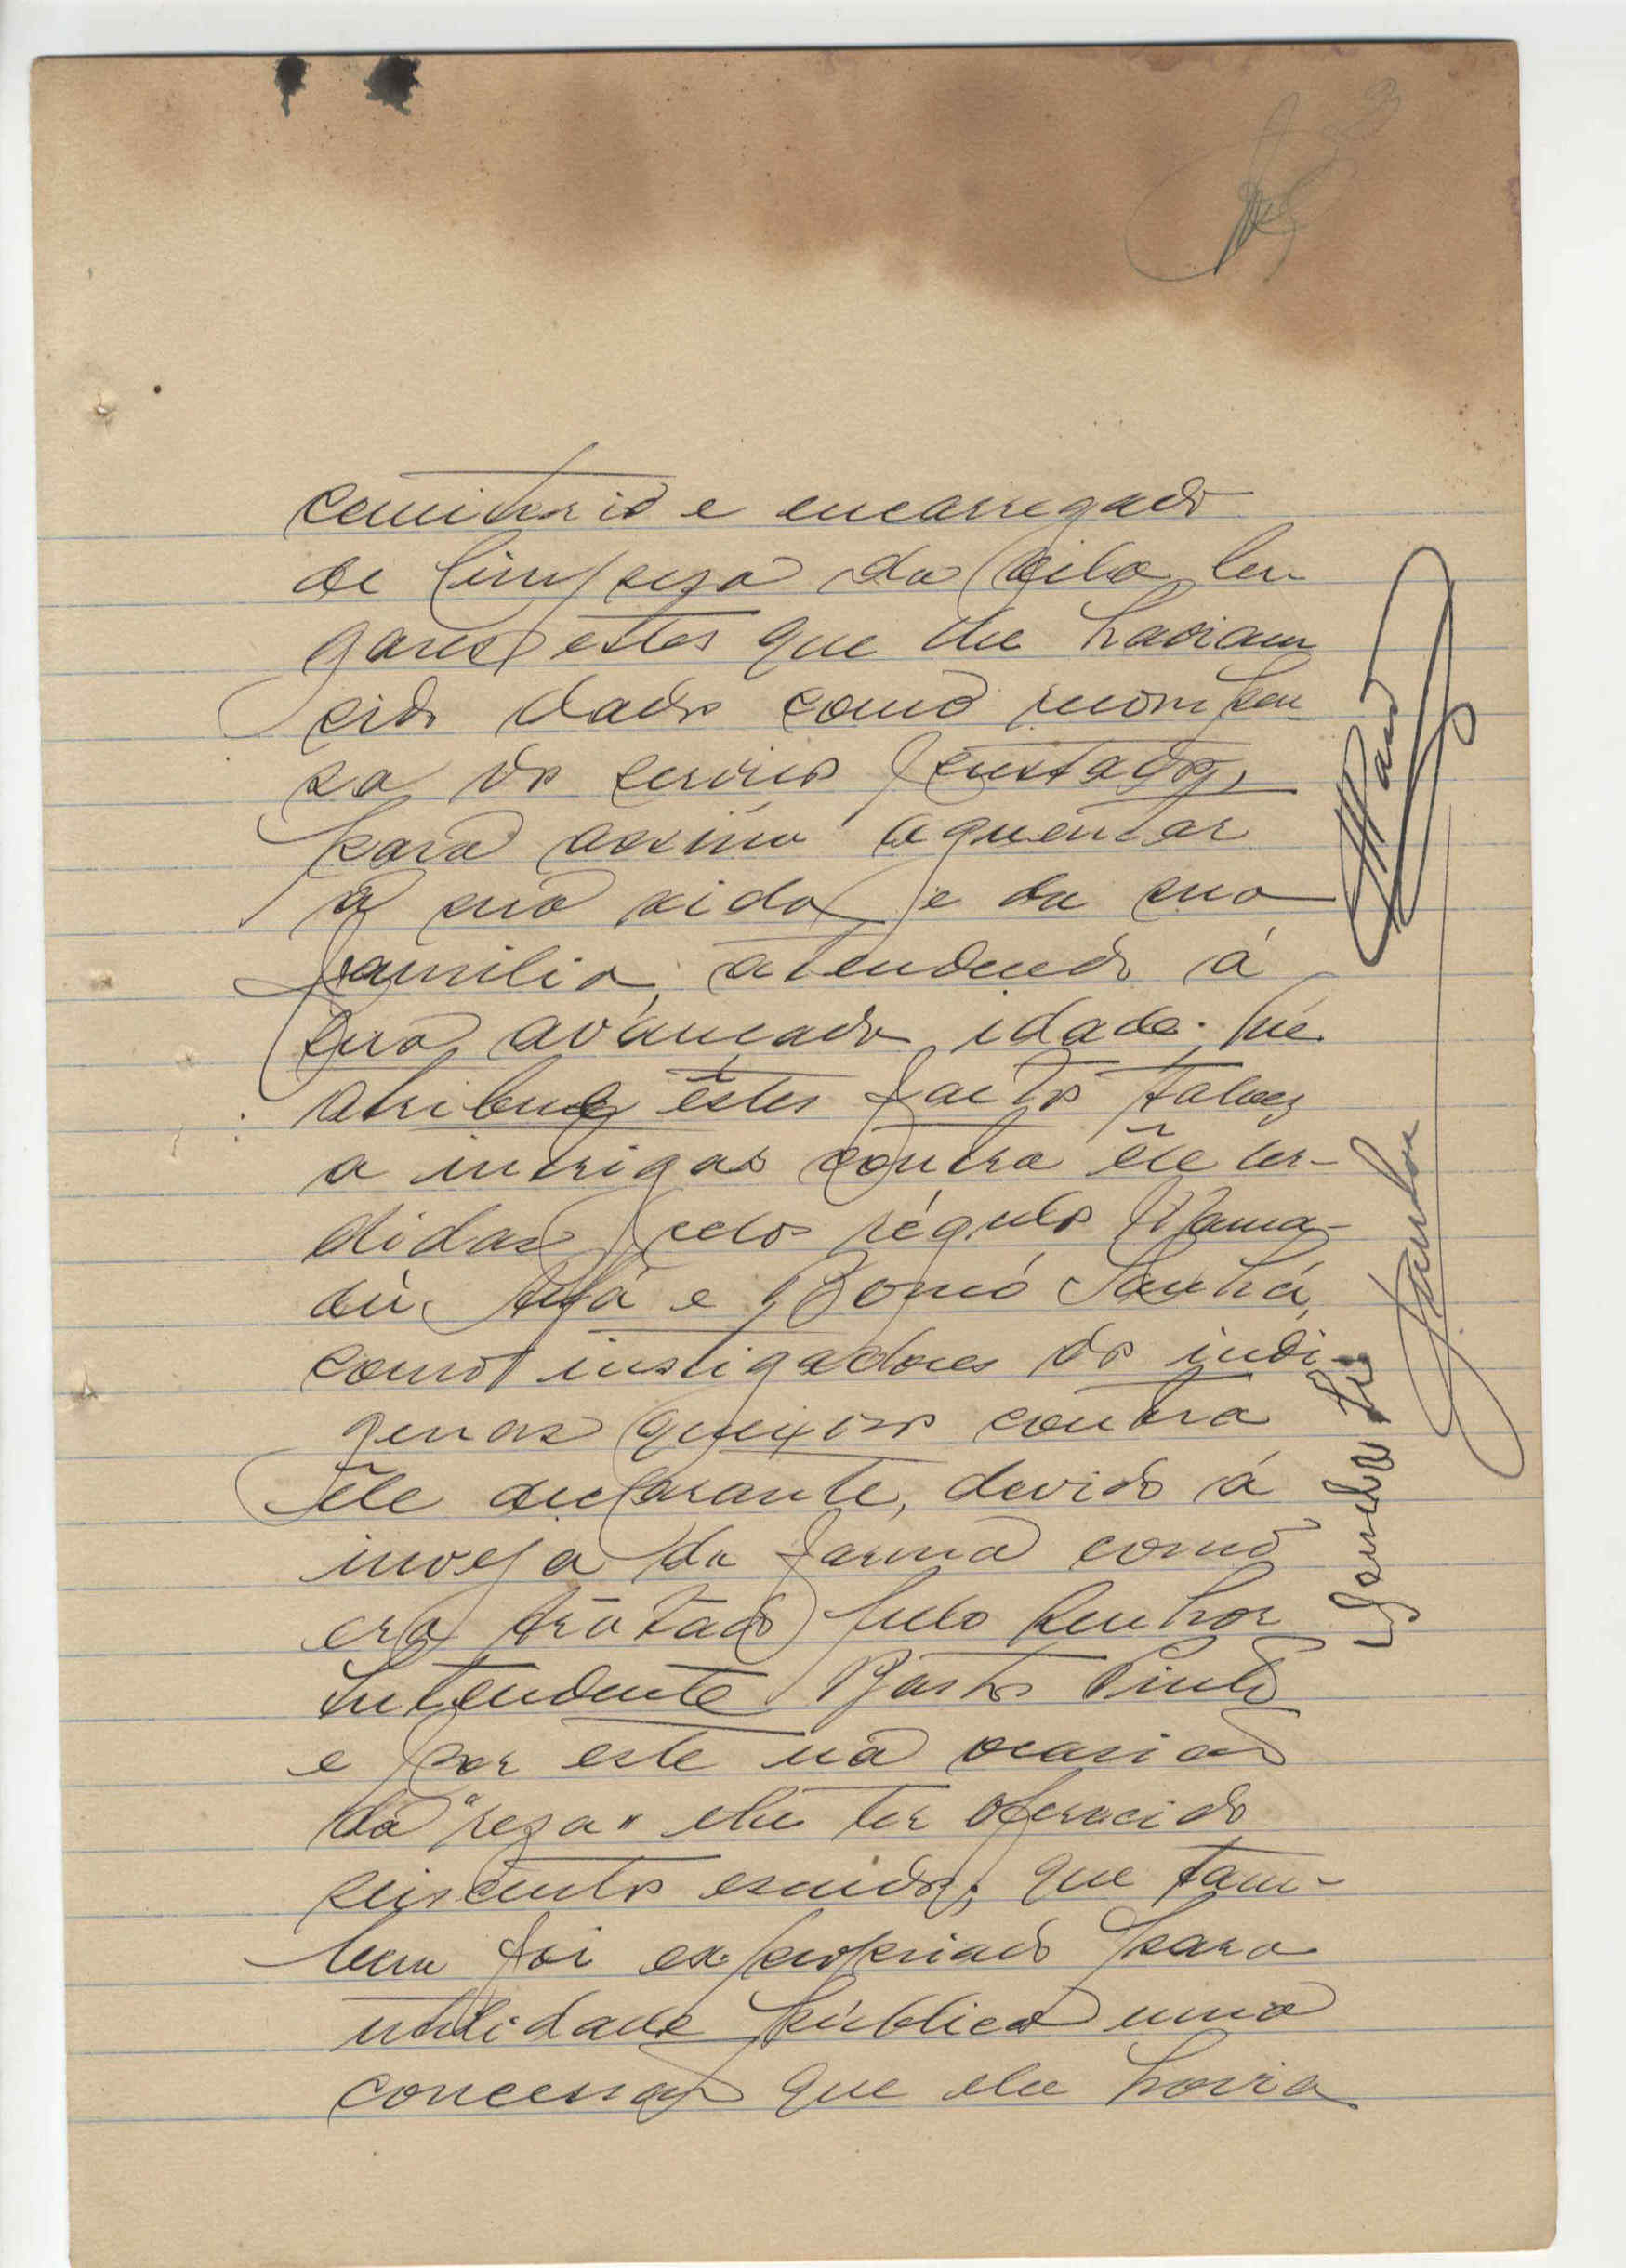 cemiterio e encarregado
de limpesa da vila lu
gares estes que lhe haviam
sido dados como recompen
sa dos serviços prestados,
para assim aguentar
a sua vida e da sua
familia, atendendo á
sua avançada idade. Que
atribue êstes factos talvez
a intrigas contra êle ur-
didas pelos régulo Mama-
dú Alfá e Bomó Sanhá,
como instigadores dos indi-
genas queixosos contra
êle declarante, devido á
inveja da forma como
era tratado pelo Senhor
Intendente Bastos Pinto
e por este na ocasião
da "reza" lhe ter oferecido
seiscentos escudos; que tam-
bem foi expropriado para
utilidade pública uma
concessão que lhe havia